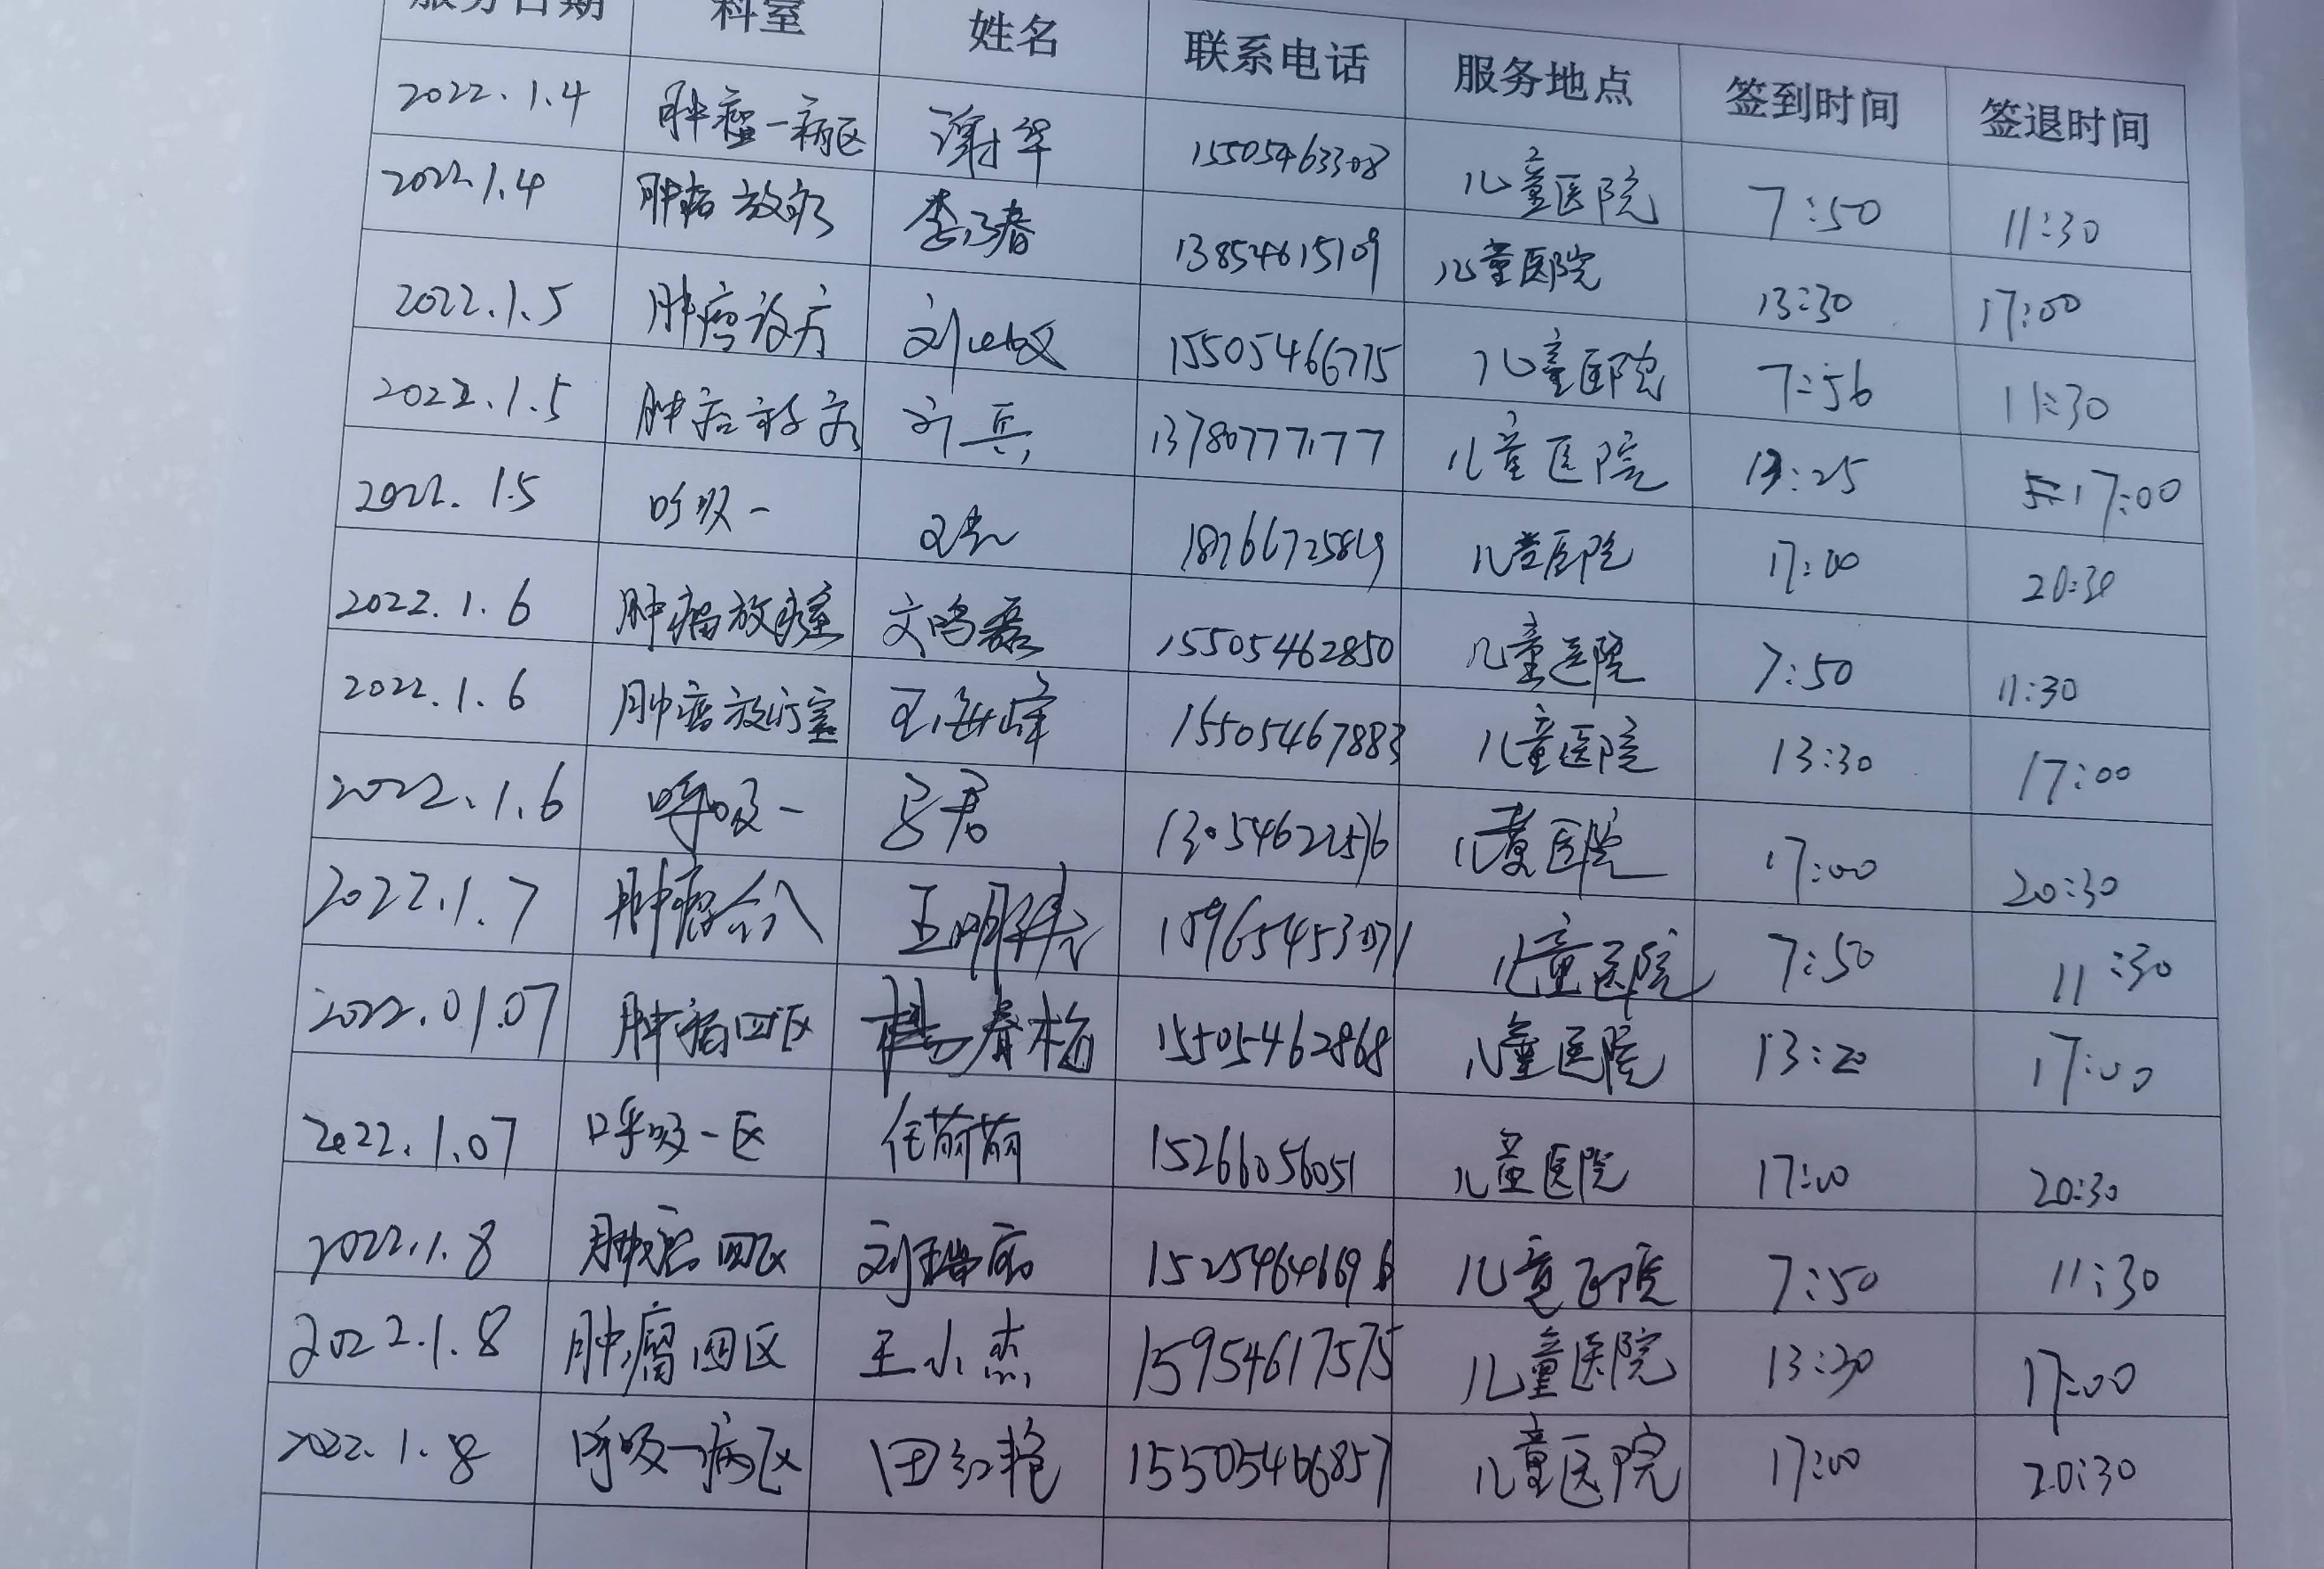 服务日期 科室 姓名 联系电话 服务地点 签到时间 签退时间
2022.1.4 肿瘤一病区 谢华 15505463308 儿童医院 7:50 11:30
2022.1.4 肿瘤放疗 李 春 13854615109 儿童医院 13:30 17:00
2022.1.5 肿瘤放疗 刘 15505466775 儿童医院 7:56 11:30
2022.1.5 肿瘤放疗 兵 13780777177 儿童医院 13:25 17:00
2022.1.5 呼吸一 18766725819 儿童医院 17:00 20:30
2022.1.6 肿瘤放疗室 文鸣磊 15505462850 儿童医院 7:50 11:30
2022.1.6 肿瘤放疗室 王海峰 15505467883 儿童医院 13:30 17:00
2022.1.6 呼吸一 君 儿童医院 17:00 20:30
2022.1.7 肿瘤 王明 儿童医院 7:50 11:30
2022.01.07 肿瘤四区 春梅 15505462868 儿童医院 13:20 17:00
2022.1.07 呼吸一区 任萌萌 15266056051 儿童医院 17:00 20:30
2022.1.8 肿瘤四区 刘瑞 15254646696 儿童医院 7:50 11:30
2022.1.8 肿瘤四区 王小杰 15954617575 儿童医院 13:30 17:00
2022.1.8 呼吸一病区 田红艳 15505466857 儿童医院 17:00 20:30